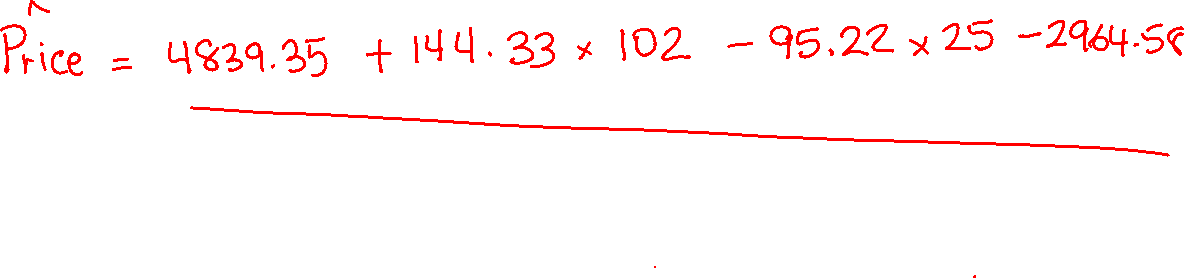 ^
Price = 4839.35 + 144.33 × 102 - 95.22 × 25 - 2964.58